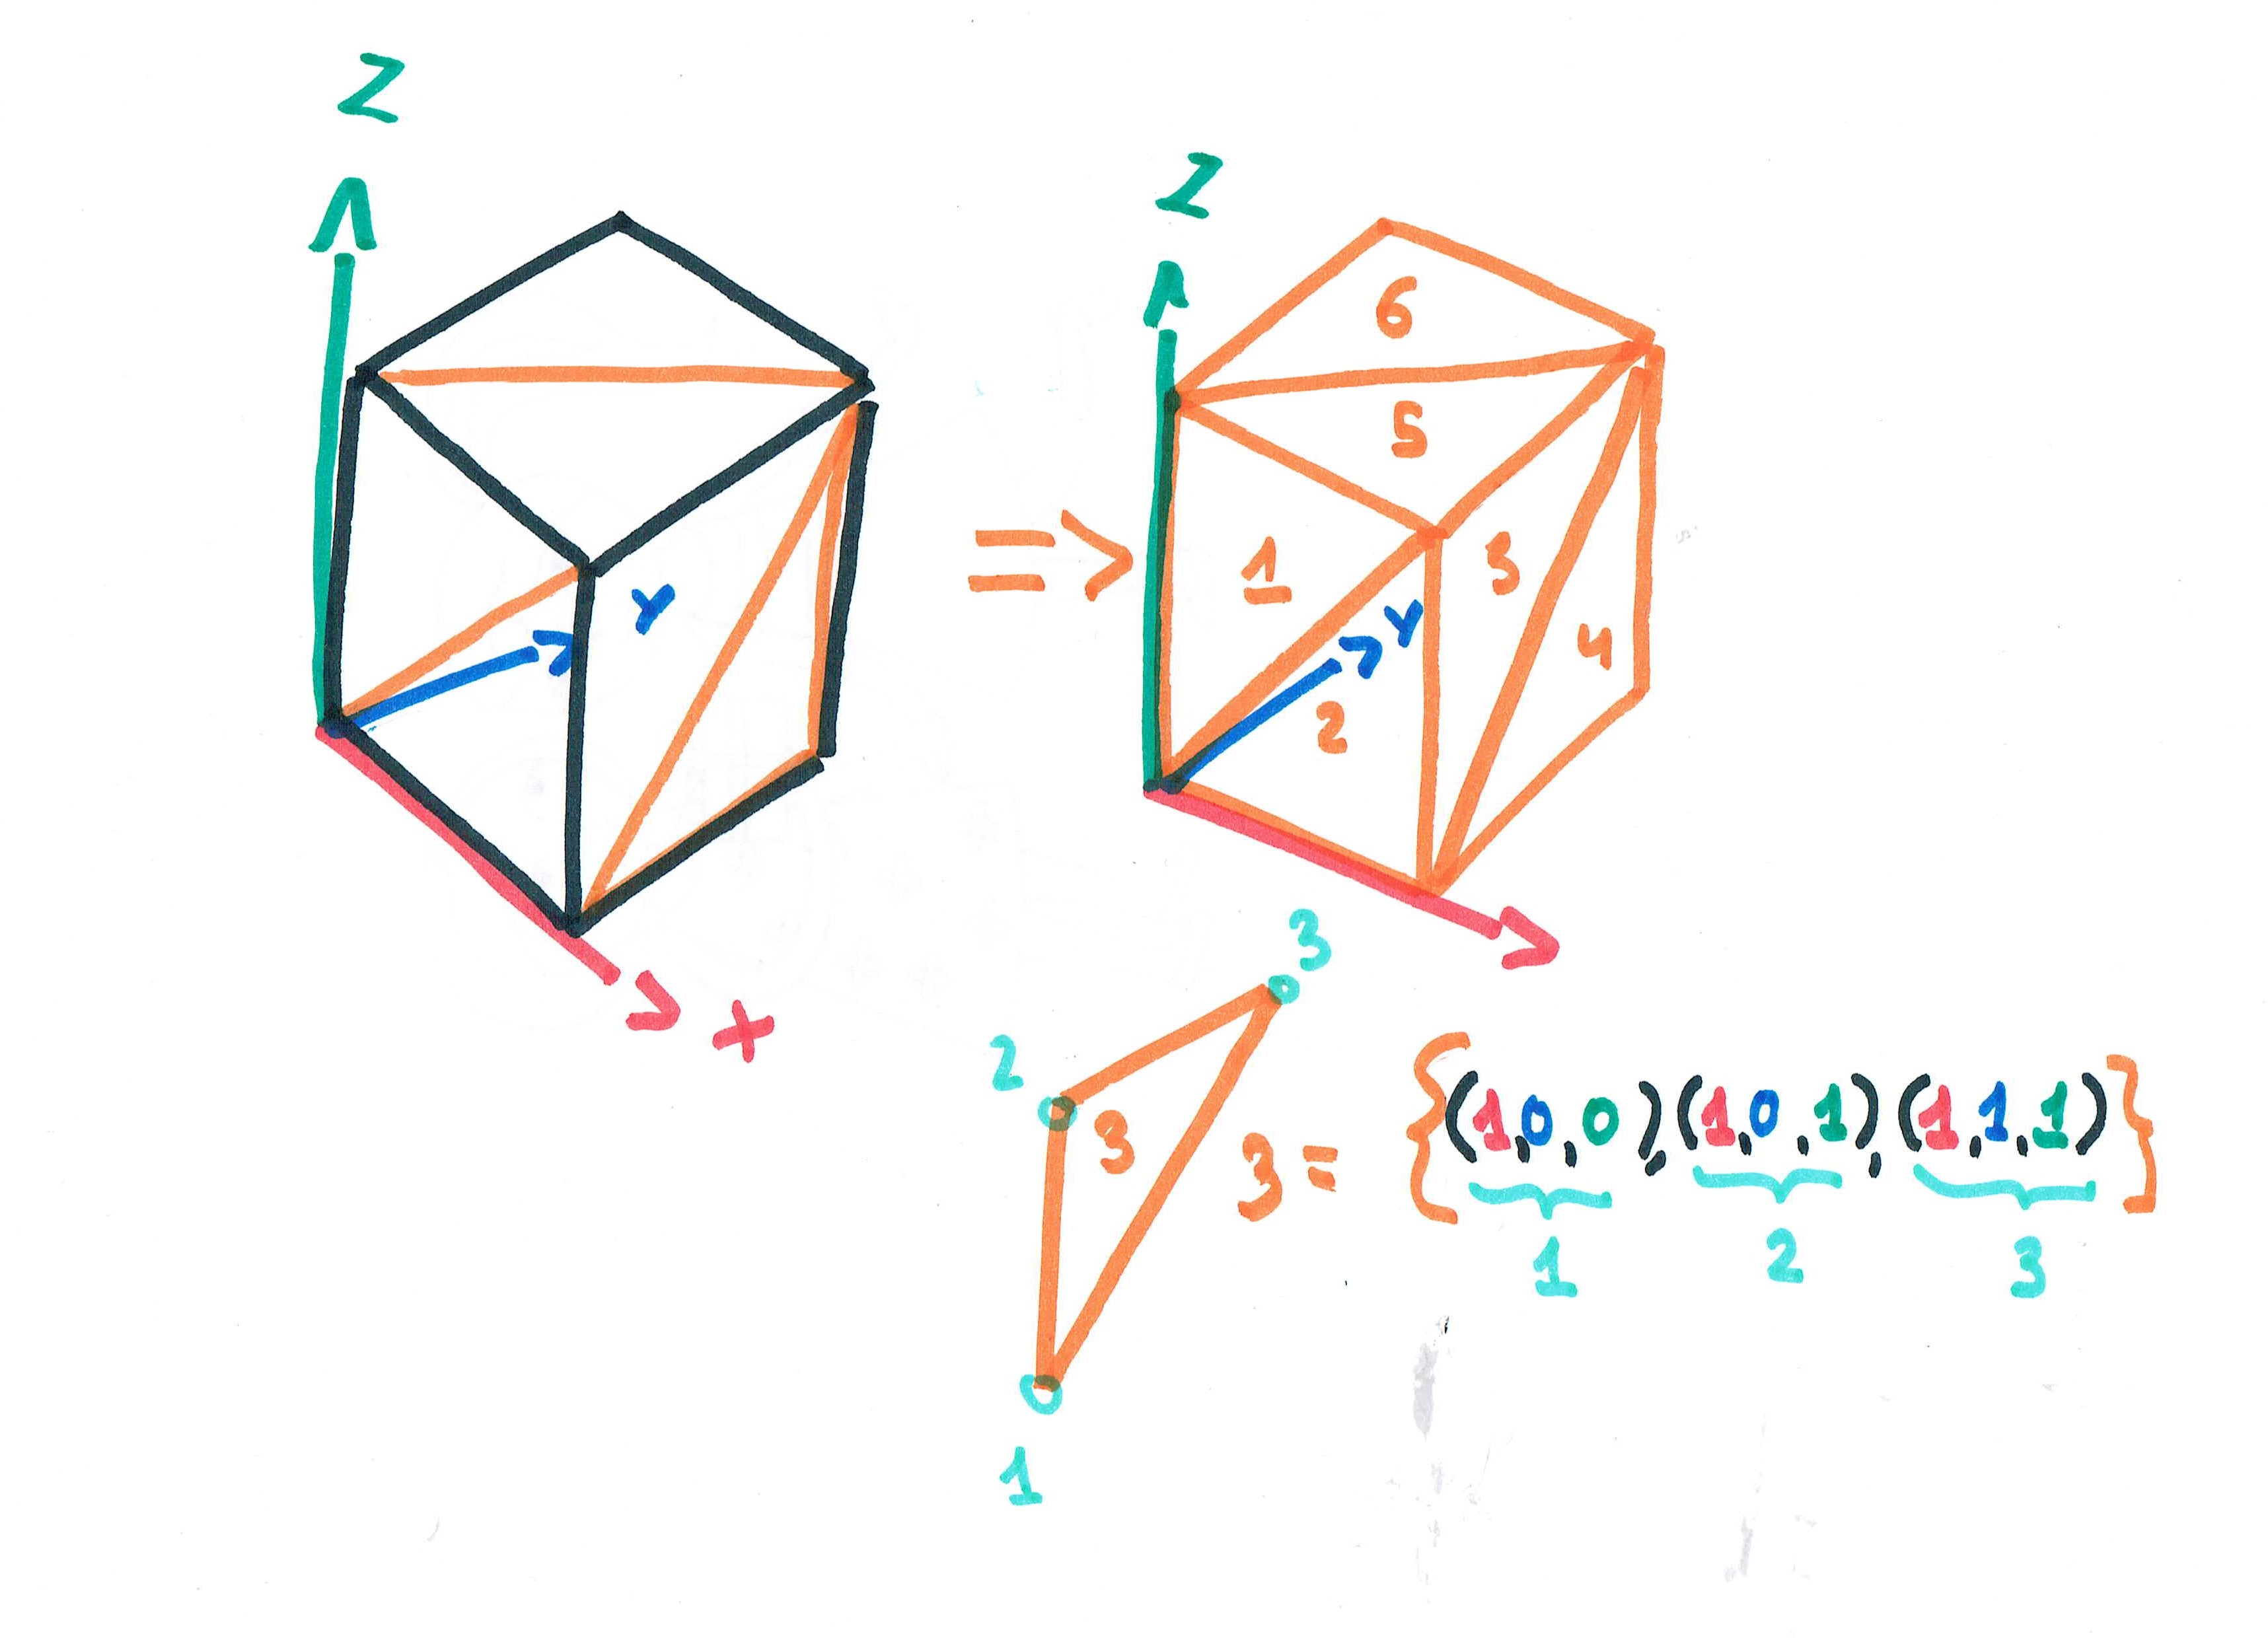 Z
Y
X
=>
Z
6
5
1
3
Y
4
2
3
2
3
1
3 = {(1,0,0),(1,0,1),(1,1,1)}
1 2 3